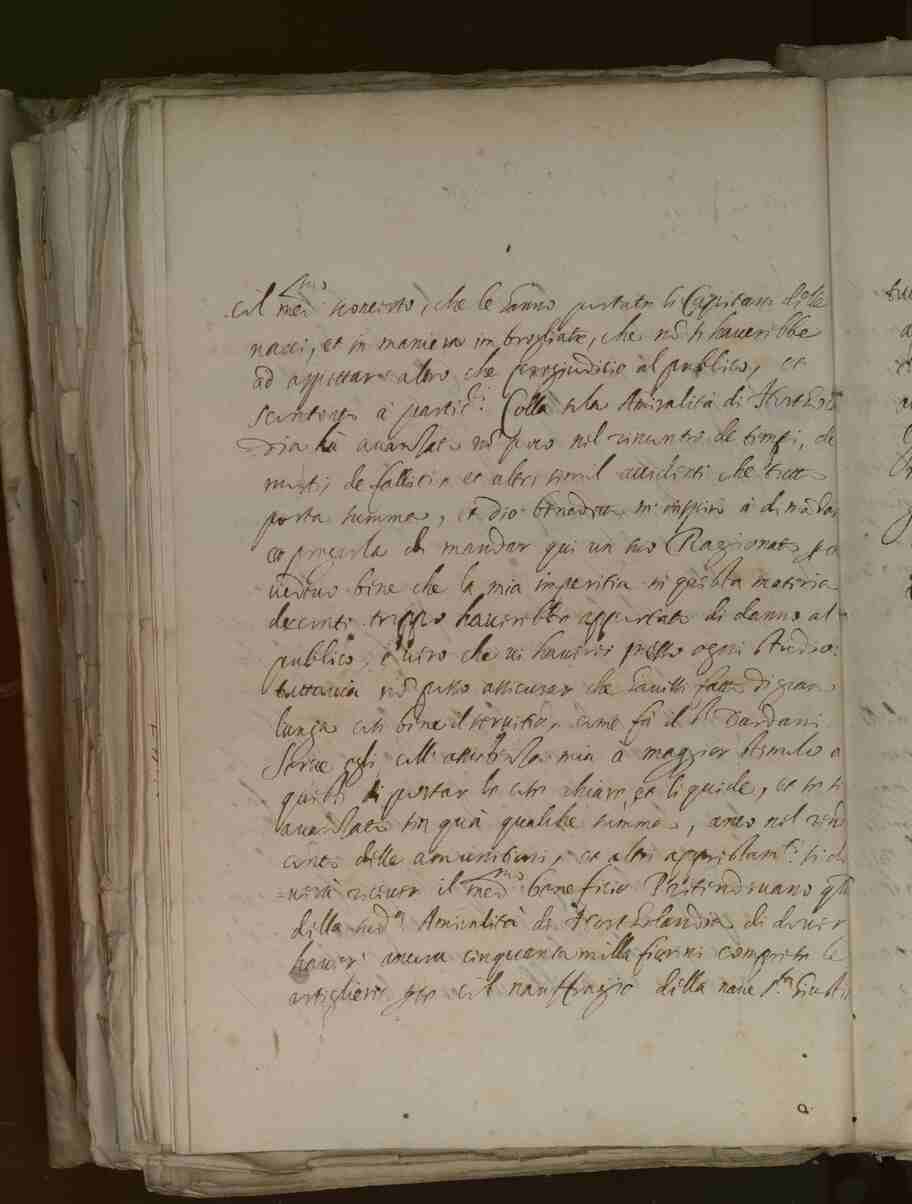 col med.mo sconcerto, che le hanno portate li Capitani delle
navi, et in maniera imbrogliate, che nõ si haverebbe
ad aspettare altro che pregiuditio al publico, et
scontento à partic.i Colla sola Amiralità di Nort
nõ poco nel rincontro de tempi, de
morti, de falliti, et altri simil accidenti che tutti
porta summa, et dio benedetto m'inspirò à dimãdar
et pregarla di mandar quì un suo Razionato
bene che la mia imperitia in questa materia
de conti troppo haverebbe apportato di danno al
publico, è vero che vi haverei messo ogni studio:
tuttavia nõ posso assicurar che haveßi fatto di gran
lunga così bene il servitio, come fà il S.r Dardani
Serve egli coll' mia à maggior stimulo a
questi di portar le cose chiare, et liquide, et
avanzate sin quà qualche summe, anco nel rin
conto delle amunitioni, et altri si do
=verà ricever il med.mo beneficio Pretendevano q.lli
della sud.a Amiralità de Northollandia di dover
haver ancora cinquanta mille fiorini compreso le
artiglierie per il nauffragio della nave S.ta Giusti